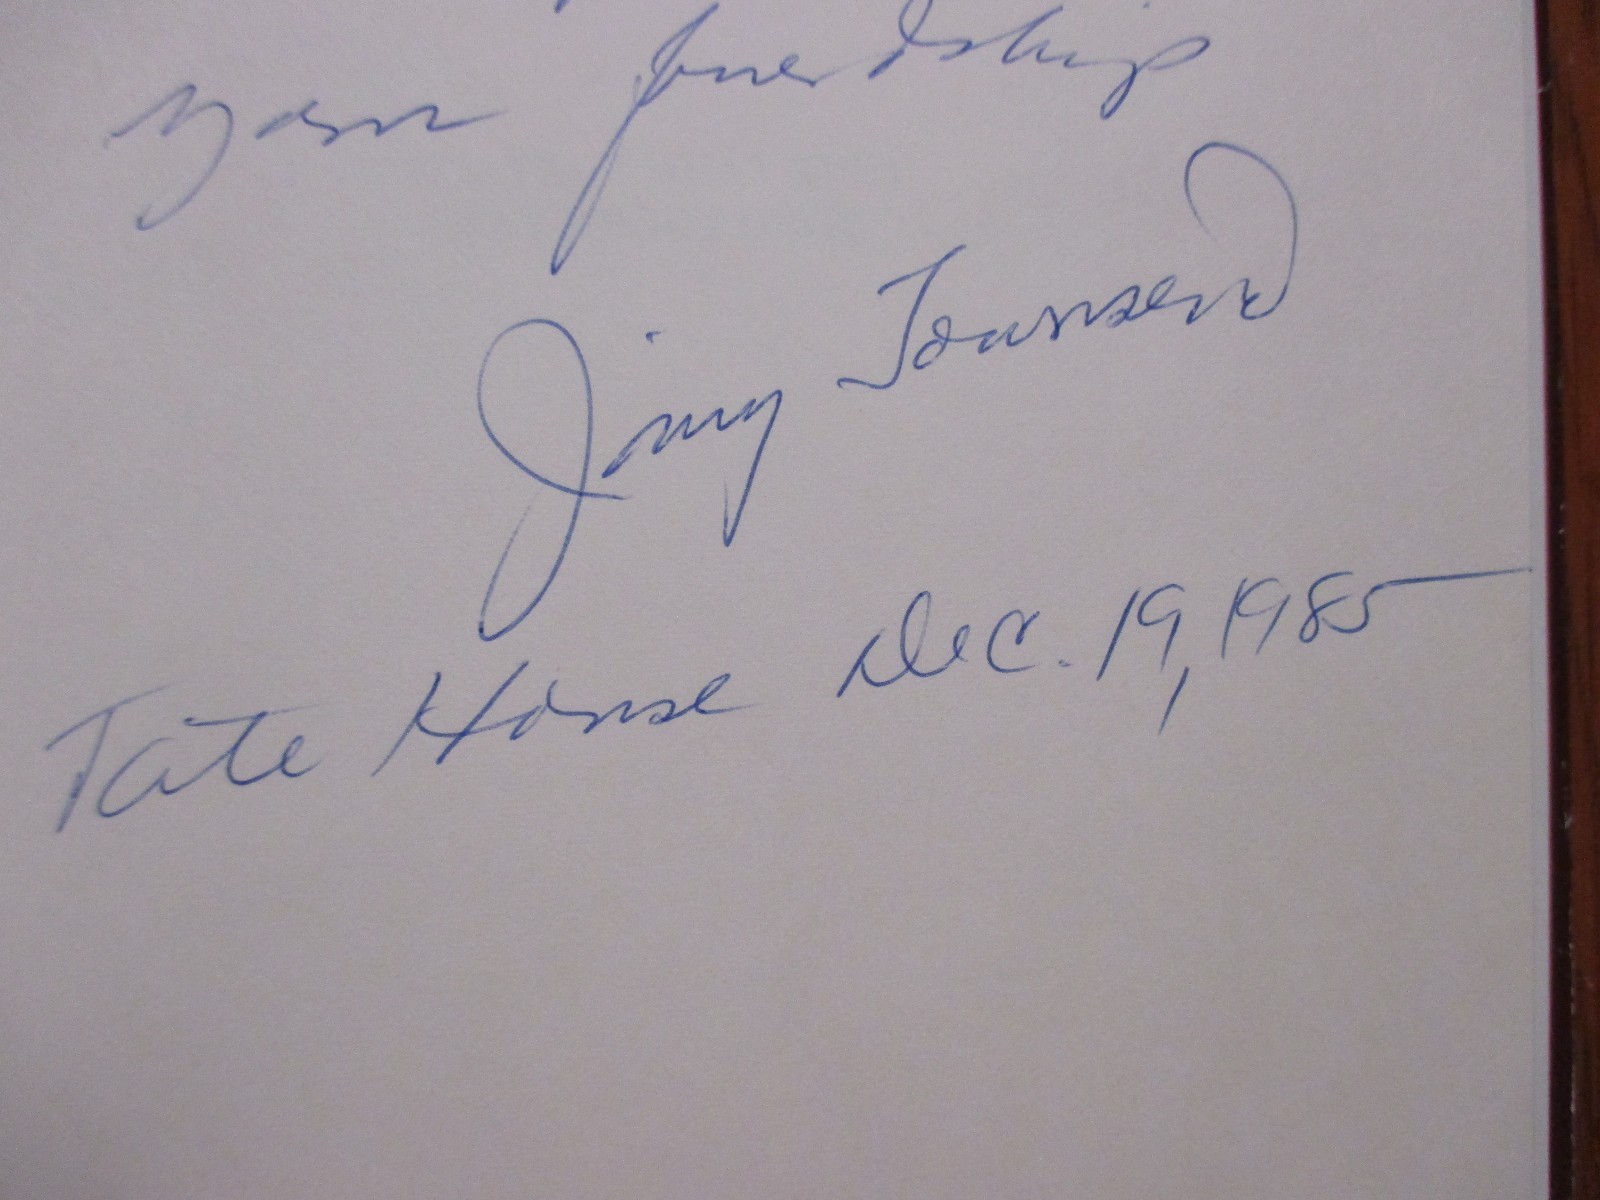 your friendship
Jimy Townsend
Tate House Dec. 19, 1985